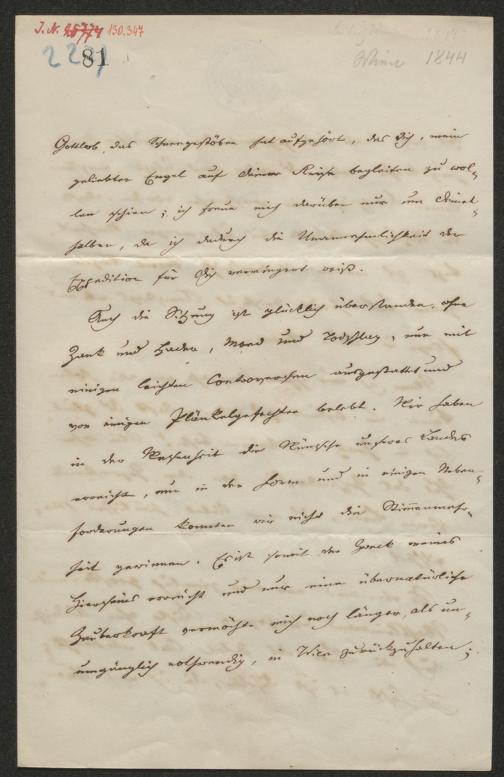 I. N. 130.347
81
1844
Gottlob, das Schneegestöber hat aufgehört, das Dich, mein
geliebter Engel auf deiner Reise begleiten zu wol-
len schien; ich freue mich darüber nur um deinet-
halber, da ich dadurch die Unannehmlichkeit der
Expedition für Dich verringert weiß.
Auch die Sitzung ist glücklich überstanden, ohne
Zank und Hader, Mord und Todschlag, nur mit
einigen leichten Controversen ausgestattet und
von einigen Plänkelgefechten belebt. Wir haben
in der Wesenheit die Wünsche unseres Landes
erreicht, nur in der Form und in einigen Neben-
forderungen konnten wir nicht die Stimmenmehr-
heit gewinnen. Es ist somit der Zweck meines
Hierseins erreicht und nur eine übernatürliche
Zauberkraft vermöchte mich noch länger, als un-
umgänglich nothwendig, in Wien zurückzuhalten;